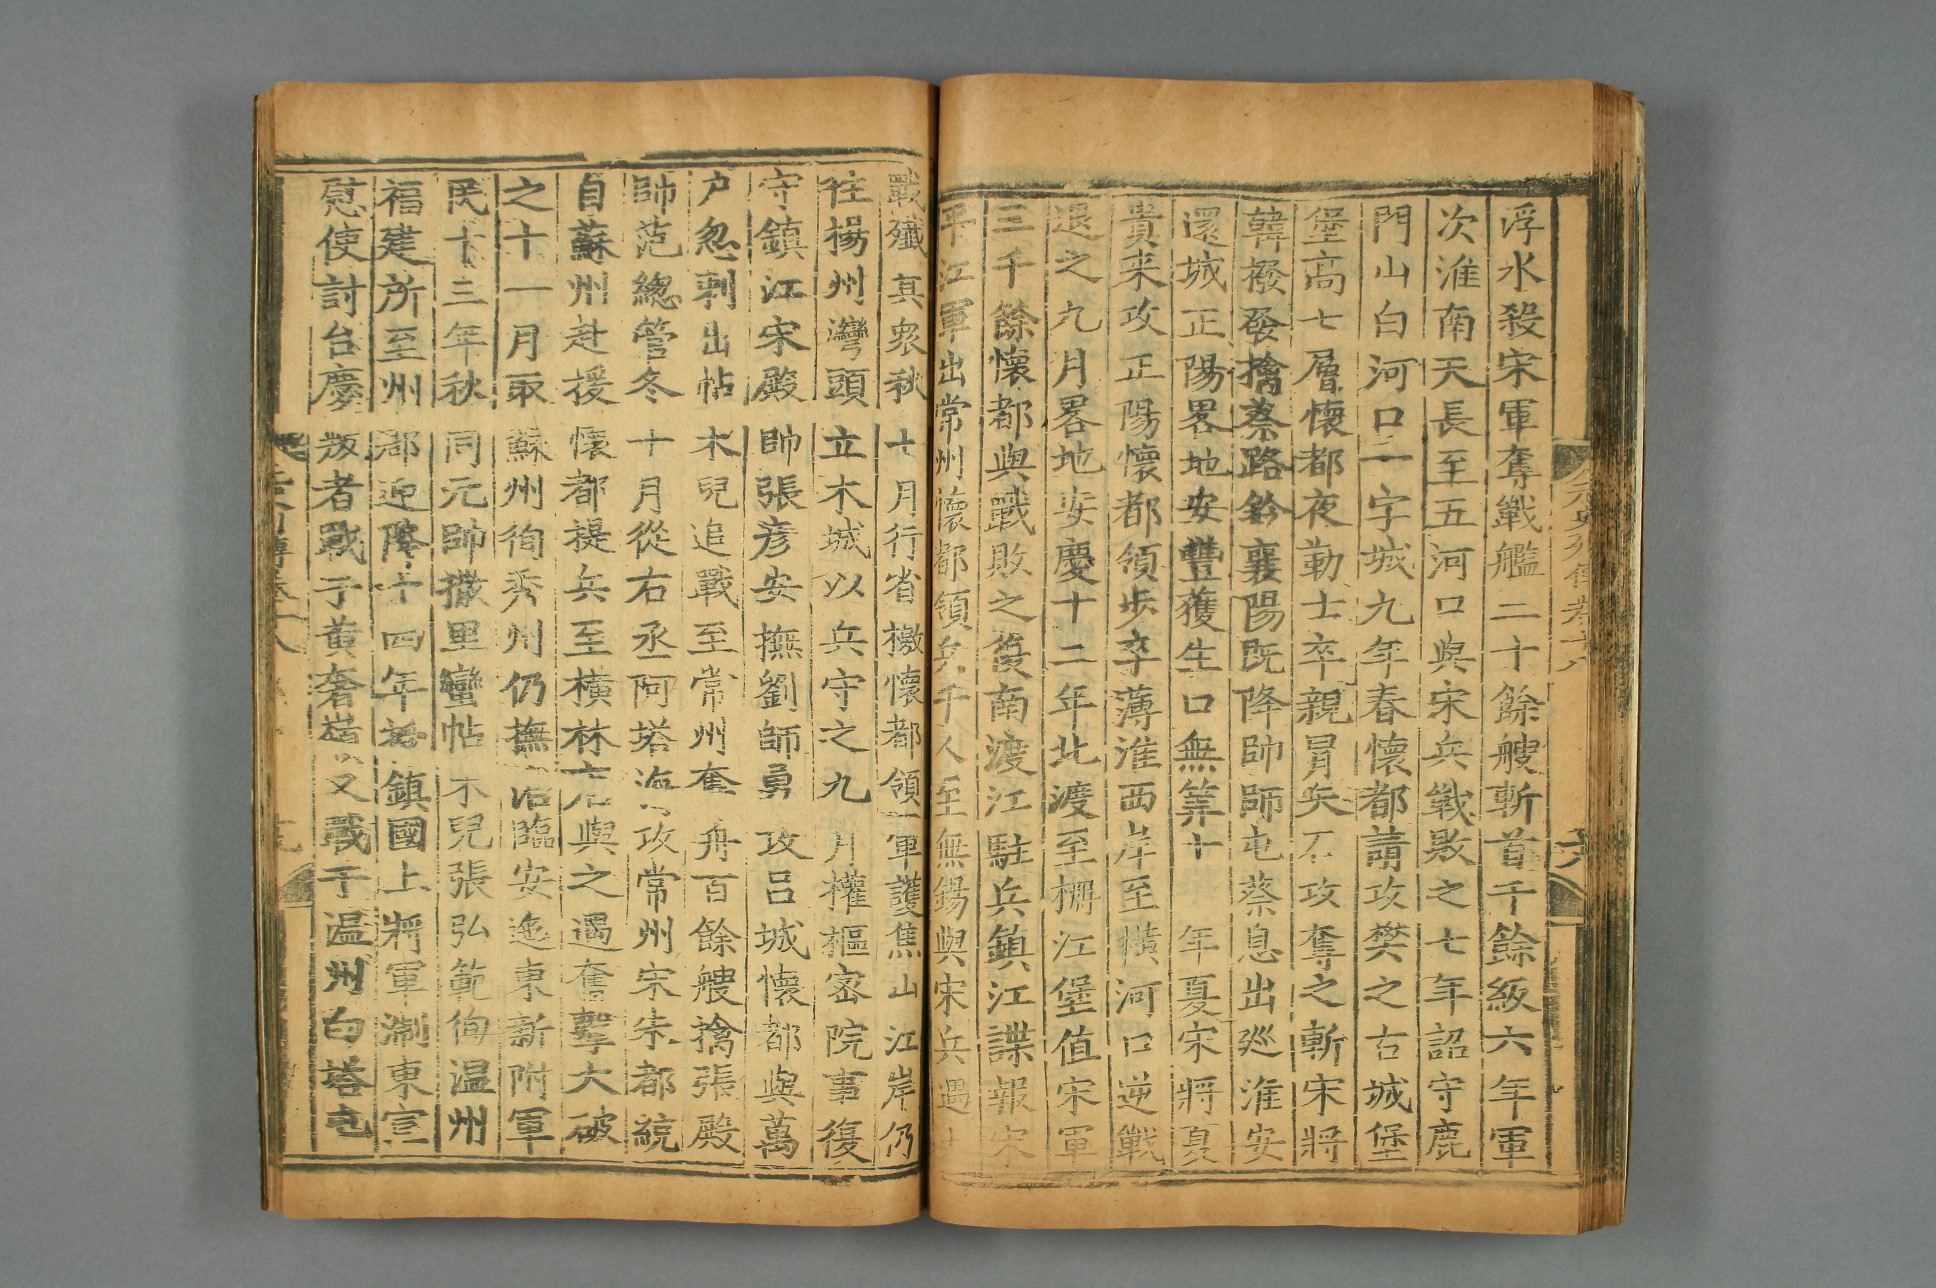 浮水殺宋軍奪戰艦二十餘艘斬首千餘級六年軍
次淮南天長至五河口與宋兵戰敗之七年詔守鹿
門山白河口一字城九年春懷都請攻樊之古城堡
堡高七層懷都夜勒士卒親冒矢石攻奪之斬宋將
韓撥發擒蔡路鈐襄陽既降帥師屯蔡息出巡淮安
還城正陽畧地安豐獲生口無筭十年夏宋將夏
貴来攻正陽懷都領步卒薄淮西岸至橫河口逆戰
退之九月畧地安慶十二年北渡至柵江堡值宋軍
三千餘懷都與戰敗之復南渡江駐兵鎮江諜報宋
平江軍出常州懷都領兵千人至無錫與宋兵遇大
戰殲其衆秋七月行省檄懷都領軍護焦山江岸仍
往楊州灣頭立木城以兵守之九月權樞密院事復
守鎮江宋殿帥張彦安撫劉師勇攻呂城懷都與萬
户忽剌出帖木兒追戰至常州奪舟百餘艘擒張殿
帥范緫管冬十月從右丞阿塔海攻常州宋朱都統
自蘇州赴援懷都提兵至橫林店與之遇奮擊大破
之十一月取蘇州徇秀州仍撫治臨安迤東新附軍
民十三年秋同元帥撒里蠻帖木兒張弘範徇温州
福建所至州郡迎降十四年授鎮國上將軍淛東宣
慰使討台慶叛者戰于黄奢嶺又戰于温州白塔屯